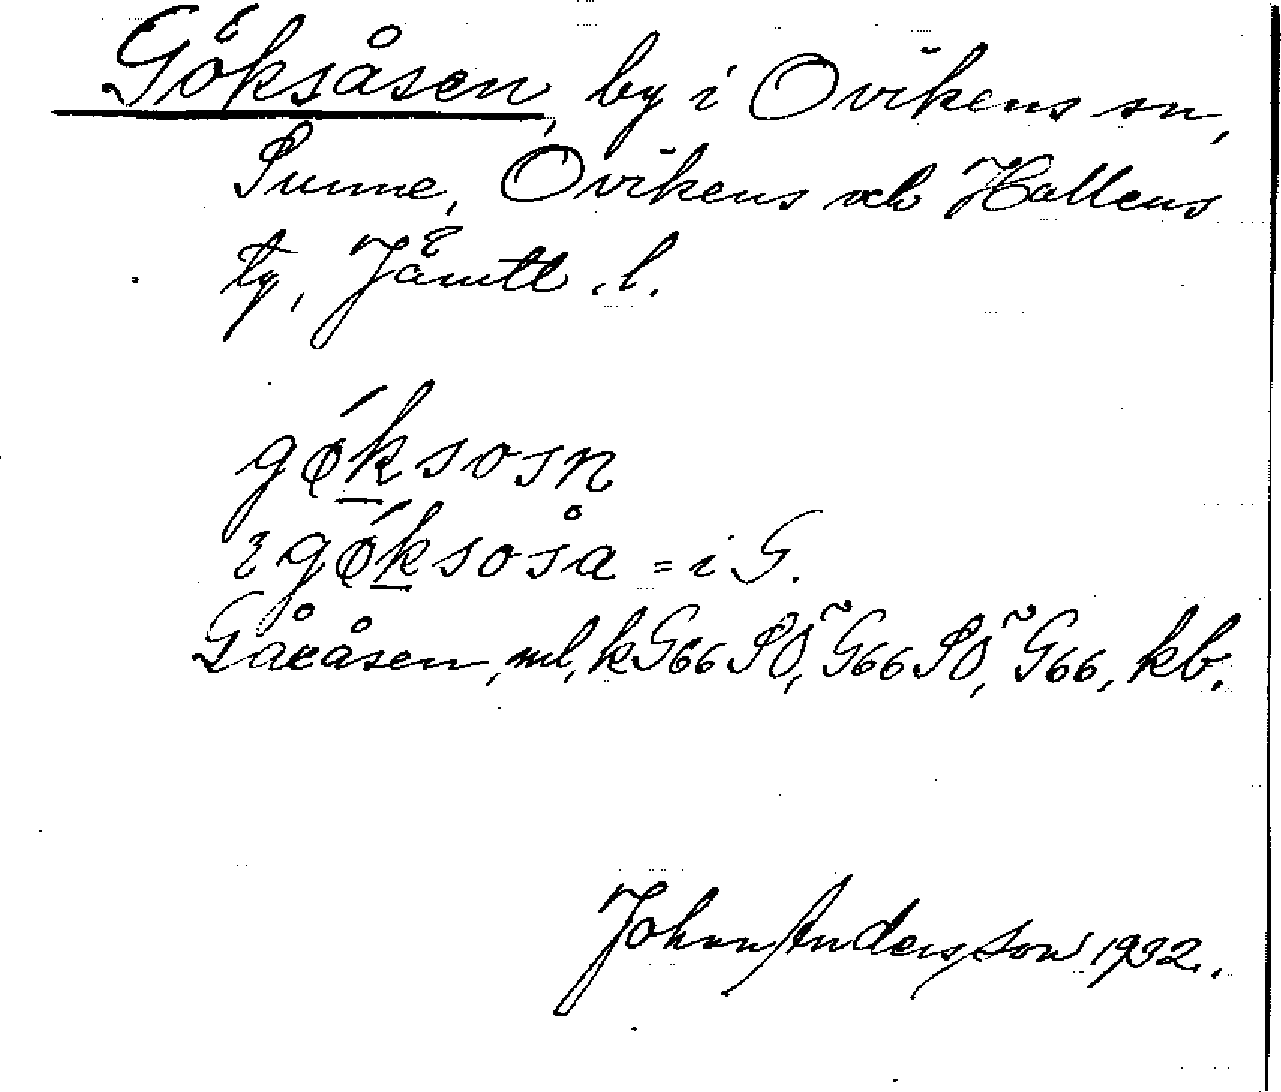 Göksåsen, by i Ovikens sn,
Sunne, Ovikens och Hallens
tg, Jämtl. l.
gǿksosn
ɿ gǿksoså = i G.
Gåxåsen, ml, k G66 SÖ, G66 SÖ, G66, kb.
Johan Andersson 1932.